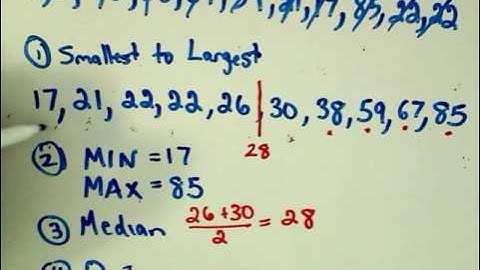 85, 22, 22
① Smallest to Largest
17, 21, 22, 22, 26, 30, 38, 59, 67, 85
28
② MIN = 17
MAX = 85
③ Median 26+30 / 2 = 28